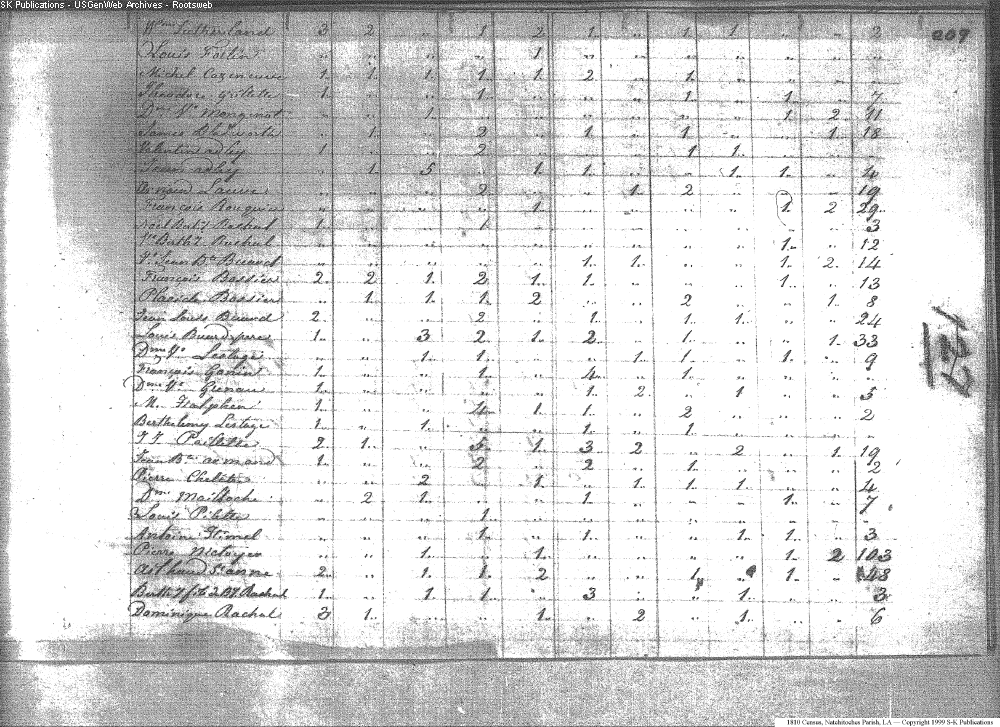 SK Publications - USGenWeb Archives - Rootsweb
Wm Sutherland 3 2 .. 1 2 1 .. 1 1 .. .. 2
209
Louis .. .. .. .. 1 .. .. .. .. .. .. ..
Michel 1 1 1 1 1 2 .. 1 .. .. .. ..
Theodore 1 .. .. 1 .. .. .. 1 .. 1 .. 7
Dme Ve .. .. 1 .. .. .. .. .. .. 1 2 11
James .. 1 .. 2 .. 1 .. 1 .. .. 1 18
Valentin adley 1 .. .. 2 .. .. .. 1 1 .. .. ..
adley . 1 5 .. 1 1 .. .. 1 1 .. 4
.. .. .. 2 .. .. 1 2 .. .. .. 19
Francois .. .. .. .. 1 .. .. .. .. 1 2 29
Noel Batt Rachal 1 .. .. 1 .. .. .. .. .. .. .. 3
Batt Rachal .. .. .. .. .. .. .. .. .. 1 .. 12
.. .. .. .. .. 1 1 .. .. 1 2 14
François Bossier 2 2 1 2 1 1 .. .. .. 1 .. 13
Placide Bossier .. 1 1 1 2 .. .. 2 .. .. 1 8
Jean Louis Buard 2 .. .. 2 .. 1 .. 1 1 .. .. 24
Louis Buard pere 1 .. 3 2 1 2 .. 1 .. .. 1 33
127
Dme Ve Lestage .. .. 1 1 .. .. 1 1 .. 1 .. 9
François 1 .. .. 1 .. 4 .. 1 .. .. .. ..
Dme Ve 1 .. .. .. .. 1 2 .. 1 .. .. 5
M. 1 .. .. 4 1 1 .. 2 .. .. .. 2
Berthelemy Lestage 1 .. 1 .. .. 1 .. 1 .. .. .. ..
Paillette 2 1 .. 5 1 3 2 .. 2 .. 1 19
Jean Bte armand 1 .. .. 2 .. 2 .. 1 .. .. .. 2
Pierre .. .. 2 .. 1 .. 1 1 1 .. .. 4
Dme Mailloche .. 2 1 .. .. 1 .. .. .. 1 .. 7
Louis .. .. .. 1 .. .. .. .. .. .. .. ..
Antoine .. .. .. 1 .. 1 .. .. 1 1 .. 3
Pierre .. .. 1 .. 1 .. .. .. .. 1 2 103
St anne 2 .. 1 1 2 .. .. 1 .. 1 .. 48
Rachal 1 .. 1 1 .. 3 .. .. 1 .. .. 3
Dominique Rachal 3 1 .. .. 1 .. 2 .. 1 .. .. 6
1810 Census, Natchitoches Parish, LA — Copyright 1999 S-K Publications